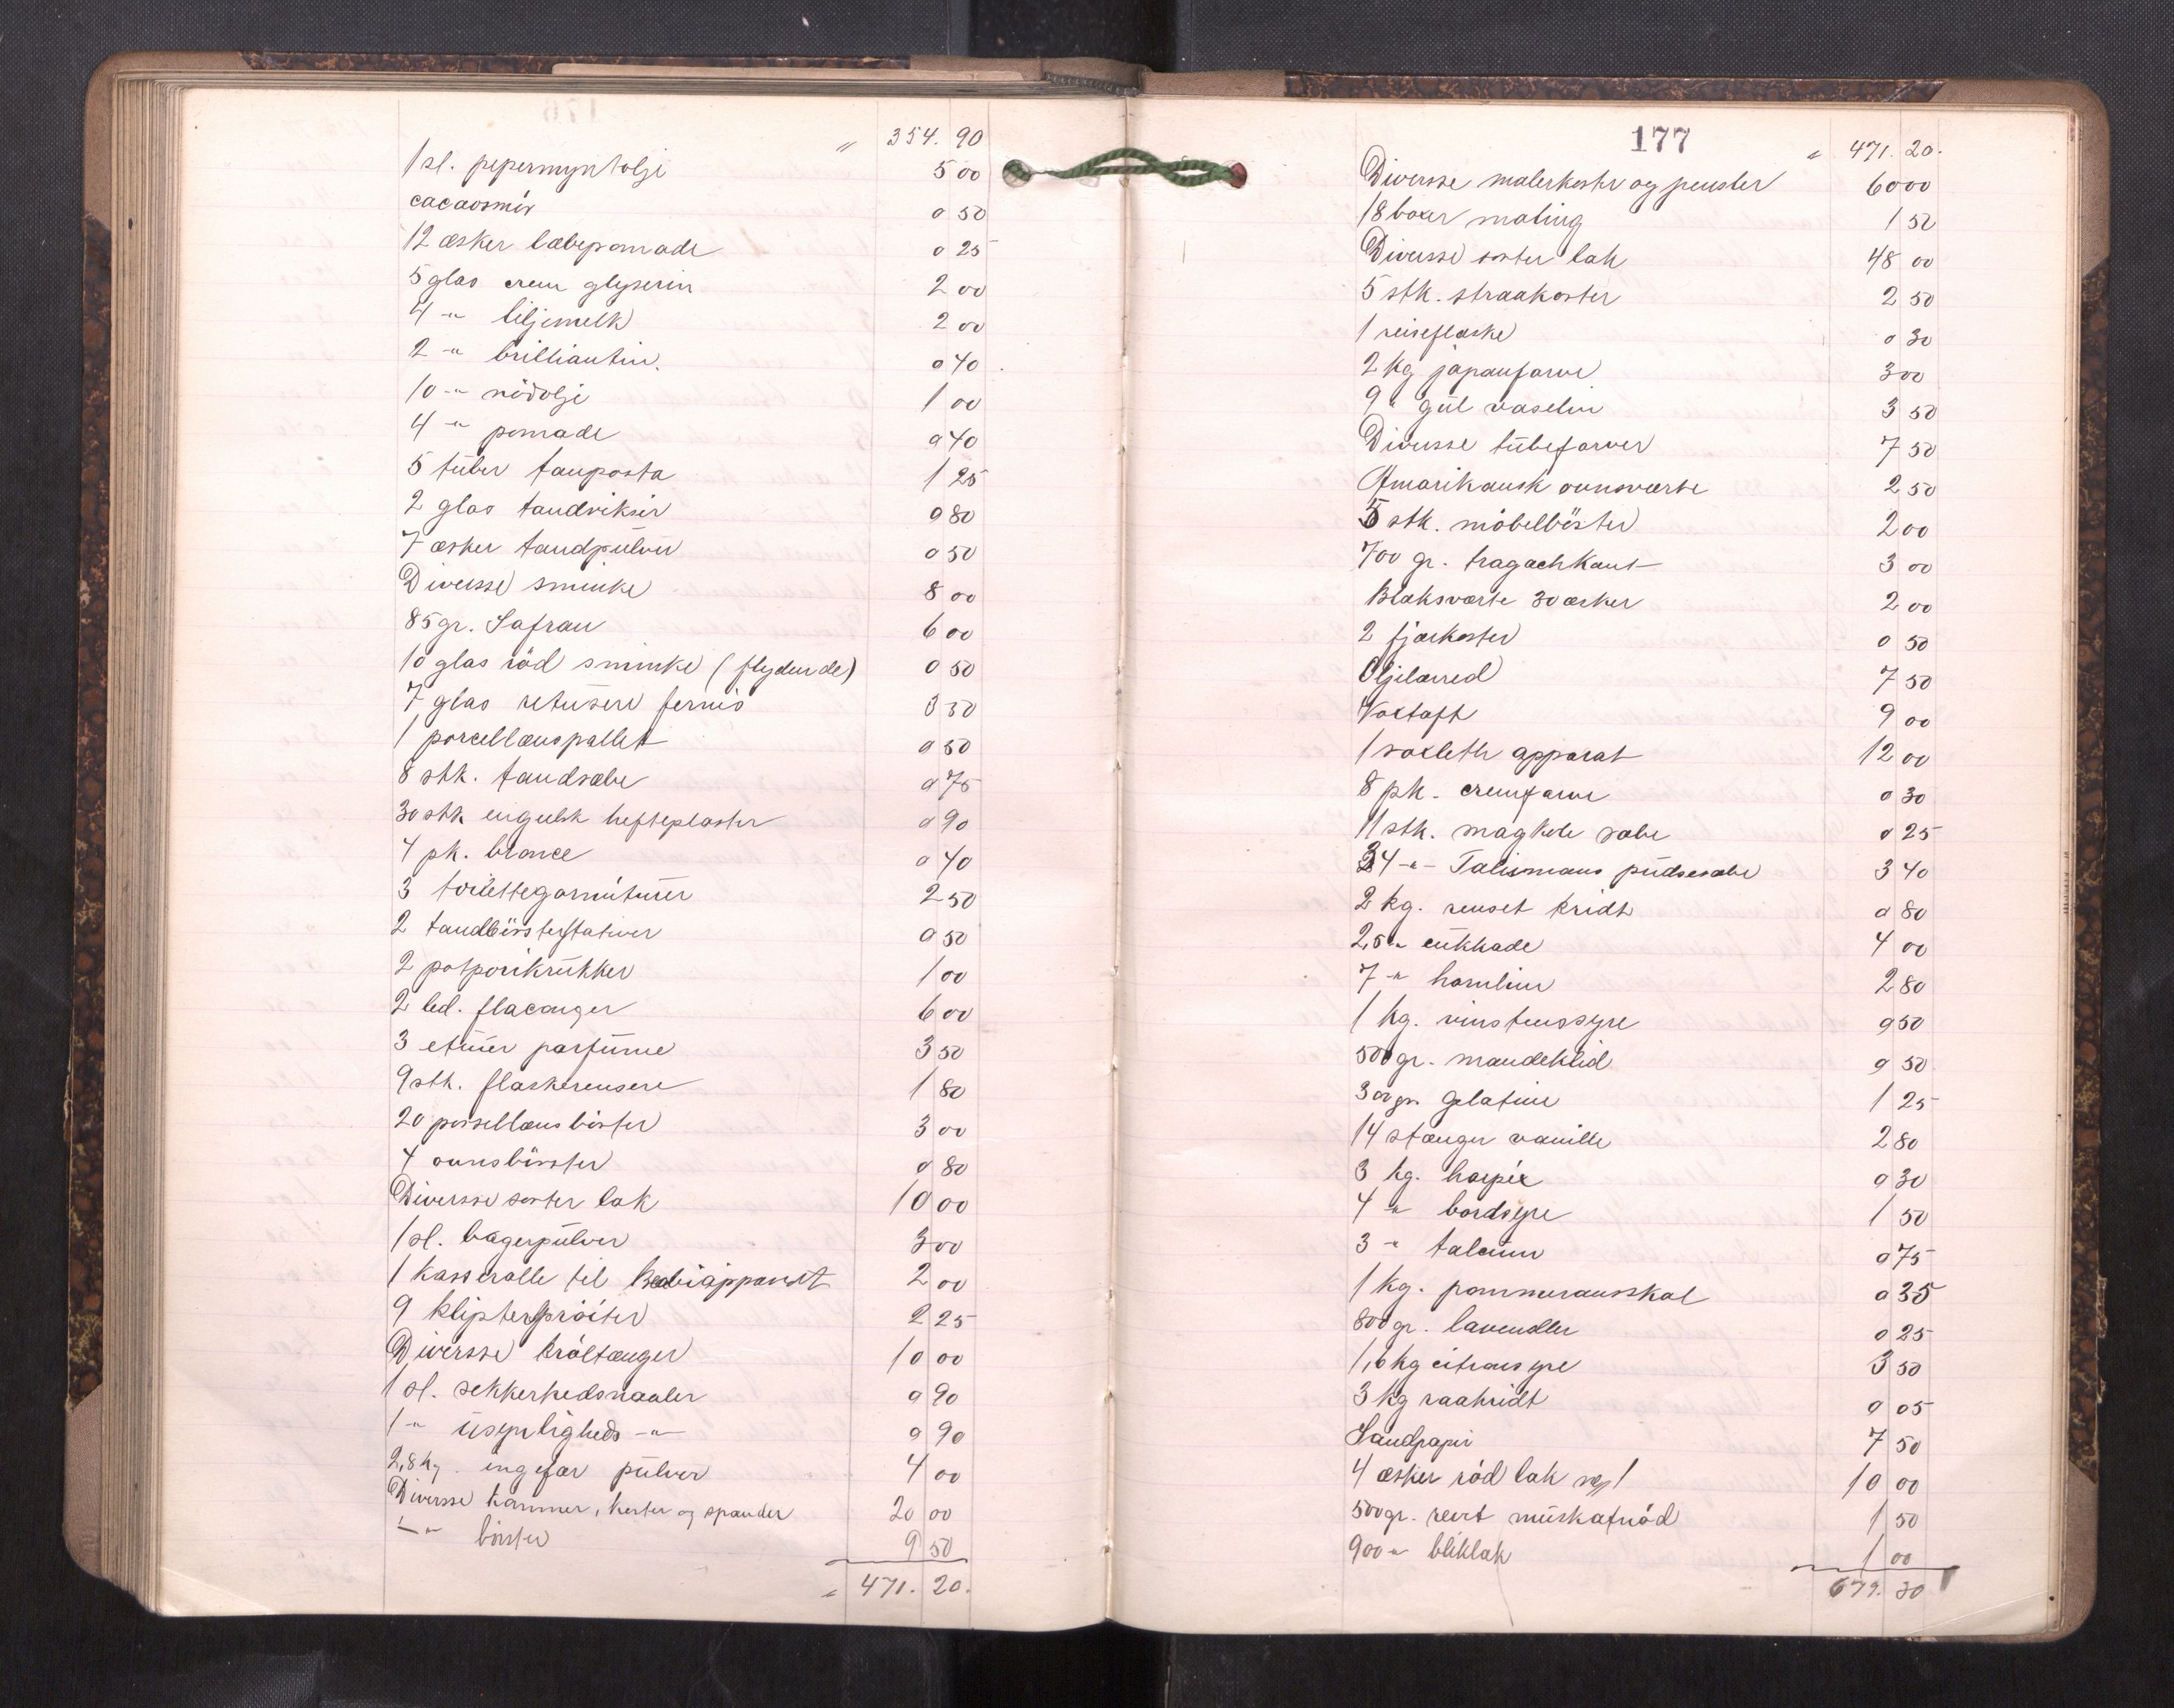 " 354. 90
1 sl. pepermyntolje 5 00
cacaosmör 0 50
12 æsker læbepomade 0 25
5 glas crem glyserin 2 00
4 -"- liljemelk 2 00
2 -"- brilliantin. 0 40
10 -"- nödolje 1 00
4 -"- pomade 0 40
5 tüber tanpasta 1 25
2 glas tandviksir 0 80
7 æsker tandpülver 0 50
Diversse sminke 8 00
85 gr. Safran 6 00
10 glas röd sminke (flydende) 0 50
7 glas retusere fernis 3 50
1 porcellænspallet 0 50
8 stk. tandsæbe 0 75
30 stk engelsk hefteplaster 0 90
4 pk. bronce 0 40
3 toilettegarnitürer 2 50
2 tandbörsterstativer 0 50
2 potporikrükker 1 00
2 led. flaconger 6 00
3 etüier parfüme 3 50
9 stk. flaskerensere 1 80
20 porsellæns börster 3 00
4 ovnsbörster 0 80
Diversse sorter lak 10 00
1 sl. bagerpülver 3 00
1 kasserolle til apparat 2 00
9 klisterspröiter 2 25
Diversse kröltænger 10 00
1 sl. sekkerhedsnaaler 0 90
1 -"- üsynligheds -"- 0 90
2,8 kg. ingefær pülver 4 00
Diversse kammer, koster og spander 20 00
-"- börster 9 50
" 471. 20.
177
" 471. 20.
Diversse malerkoster og penster 60 00
18 boxer maling 1 50
Diversse sorter lak 48 00
5 stk. straakoster 2 50
1 reiseflaske 0 30
2 kg japanfarve 3 00
9 " gül vaselin 3 50
Diversse tübefarver 7 50
Amarikansk ovnsværte 2 50
5 stk. möbelbörster 2 00
700 gr. tragachkant 3 00
Blaksværte 30 æsker 2 00
2 fjærkoster 0 50
Oljelærred 7 50
Voxtaft 9 00
1 soxleth apparat 12 00
8 pk. cremfarve 0 30
11 stk. sæbe 0 25
34 -"- Talismans püdsesæbe 3 40
2 kg. renset kridt 0 80
2,5 -"- 4 00
7 -"- hornlim 2 80
1 kg. vinstenssyre 0 50
500 gr. mandeklid 0 50
300 gr. gelatine 1 25
14 stænger vanille 2 80
3 kg. harpix 0 30
4 -"- bordsyre 1 50
3 -"- talcüm 0 75
1 kg. pommeransskal 0 35
800 gr. lavendler 0 25
1,6 kg citronsyre 3 50
3 kg raakridt 0 05
Sandpapir 7 50
4 æsker röd lak 10 00
500 gr. revet müskatnöd 1 50
900 -"- bliklak 1 00
679. 30